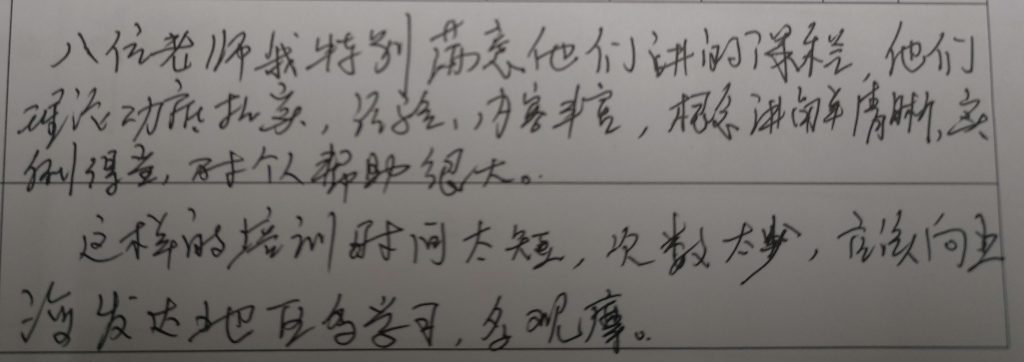 八位老师我特别满意他们讲的课程,他们
理论功底扎实,经验、内容丰富,概念讲的清晰,实
例得当,对个人帮助很大。
这样的培训时间太短,次数太少,应该向上
海发达地区多学习,多观摩。